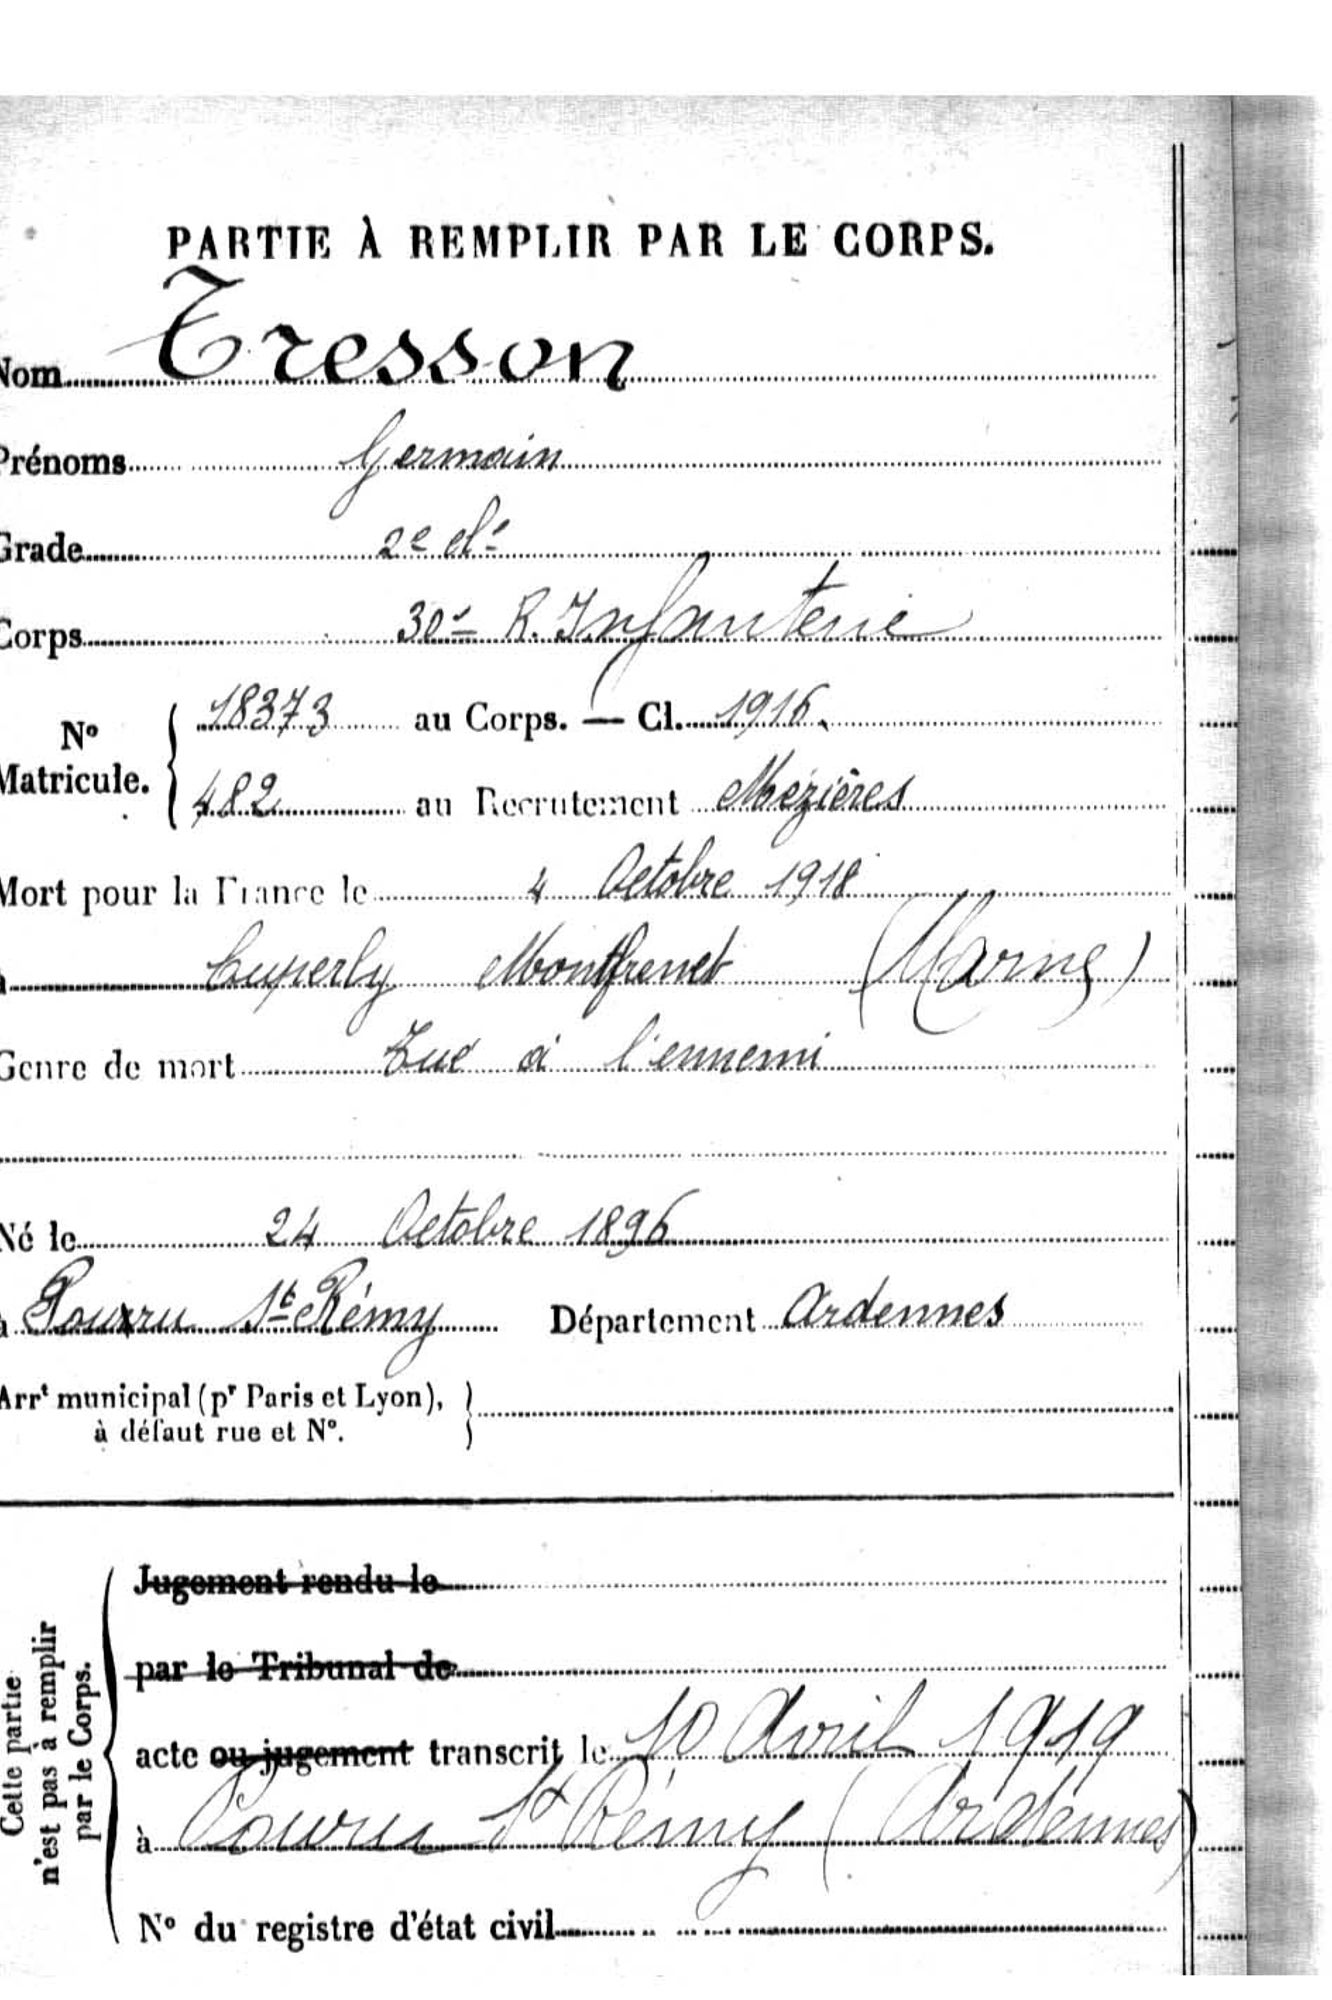 PARTIE À REMPLIR PAR LE CORPS.
Nom Tresson
Prénoms Germain
Grade 2e cl.
Corps 30e R. Infanterie
No Matricule. { 18373 au Corps. — Cl. 1916.
482 au Recrutement Mézières
Mort pour la France le 4 Octobre 1918
à Cuperly Montfrenet (Marne)
Genre de mort Tué à l'ennemi
Né le 24 Octobre 1896
à Pourru St Rémy Département Ardennes
Arrt municipal (pr Paris et Lyon), }
à défaut rue et No.
Cette partie
n'est pas à remplir
par le Corps.
Jugement rendu le
par le Tribunal de
acte ou jugement transcrit le 10 Avril 1919
à Pouru St Rémy (Ardennes)
No du registre d'état civil